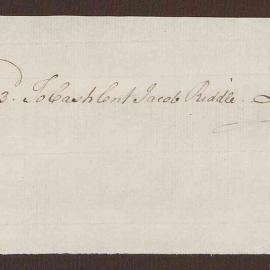 3. To Cash lent Jacob Riddle.